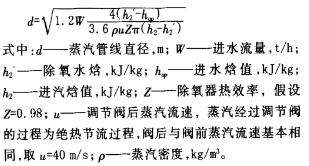 d=√1.2W 4(h₂'-hsp) / 3.6ρuZπ(h₂-h₂')
式中:d——蒸汽管线直径,m; W——进水流量,t/h;
h₂'——除氧水焓,kJ/kg; hsp——进水焓值,kJ/kg;
h₂——进汽焓值,kJ/kg; Z——除氧器热效率，假设
Z=0.98; u——调节阀后蒸汽流速，蒸汽经过调节阀
的过程为绝热节流过程,阀后与阀前蒸汽流速基本相
同,取 u=40 m/s; ρ——蒸汽密度,kg/m³。